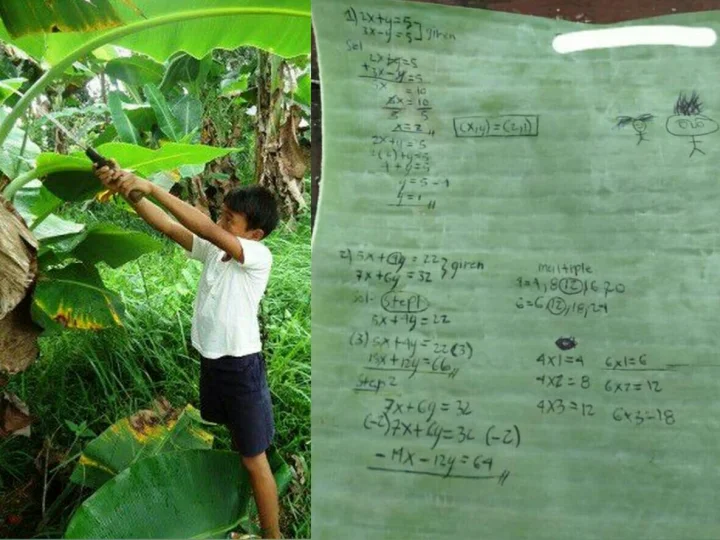 1) 2x+y=5
3x-y=5 ] given
Sol
2x+y=5
+ 3x-y=5
5x =10
5x = 10
5 5
x=2
(x,y) = (2,1)
2x+y=5
2(2)+y=5
4+y=5
y=5-4
y=1
2) 5x+4y=22
7x+6y=32 } given
Sol- Step 1
5x+4y=22
(3) 5x+4y=22(3)
15x+12y=66
Step 2
7x+6y=32
(-2)7x+6y=32 (-2)
-14x-12y=64
multiple
4=4,8,12,16,20
6=6,12,18,24
4x1=4 6x1=6
4x2=8 6x2=12
4x3=12 6x3=18